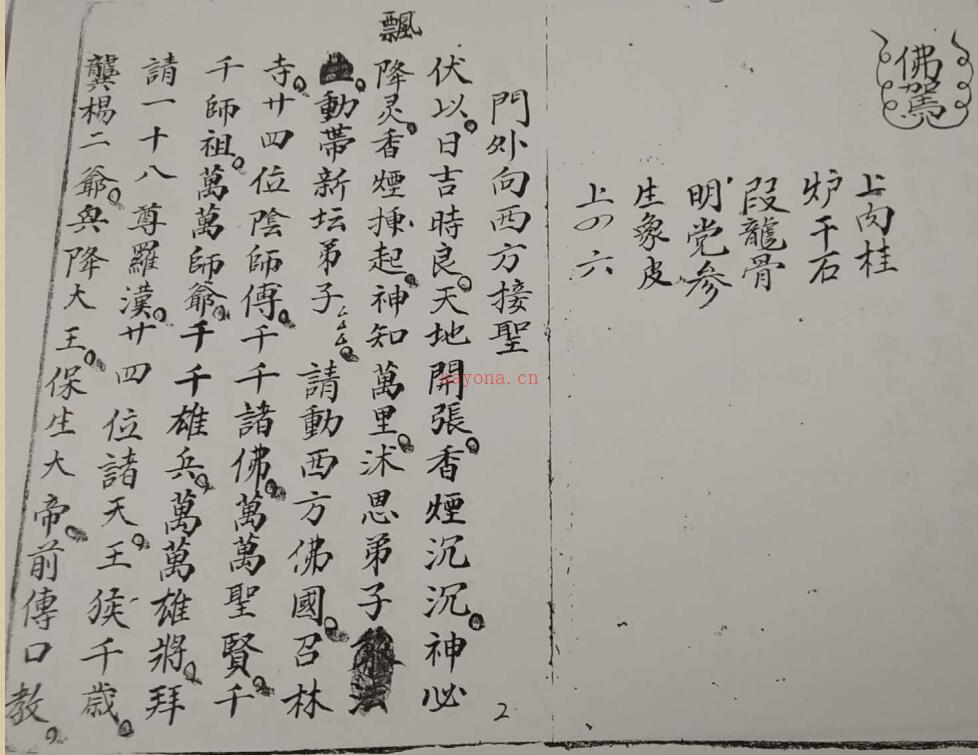 佛駕
上肉桂
炉干石
段龍骨
明党参
生象皮
上四六
門外向西方接聖
伏以。日吉時良。天地開張。香煙沉沉。神必
飄
降灵。香煙捸起。神知萬里。沭思弟子法
動帶新坛弟子ムムム。請動西方佛國。召林
寺。廿四位陰師傅。千千諸佛。萬萬聖賢。千
千師祖。萬萬師爺。千千雄兵。萬萬雄將。拜
請一十八尊羅漢。廿四位諸天。王侯千歲。
龔楊二爺。與降大王。保生大帝。前傳口教。
2
kayona.cn